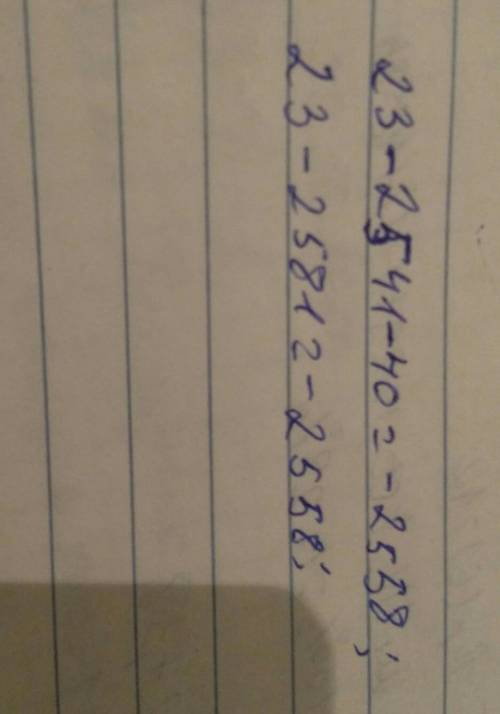 23-2541-40=-2558;
23-2581=-2558;